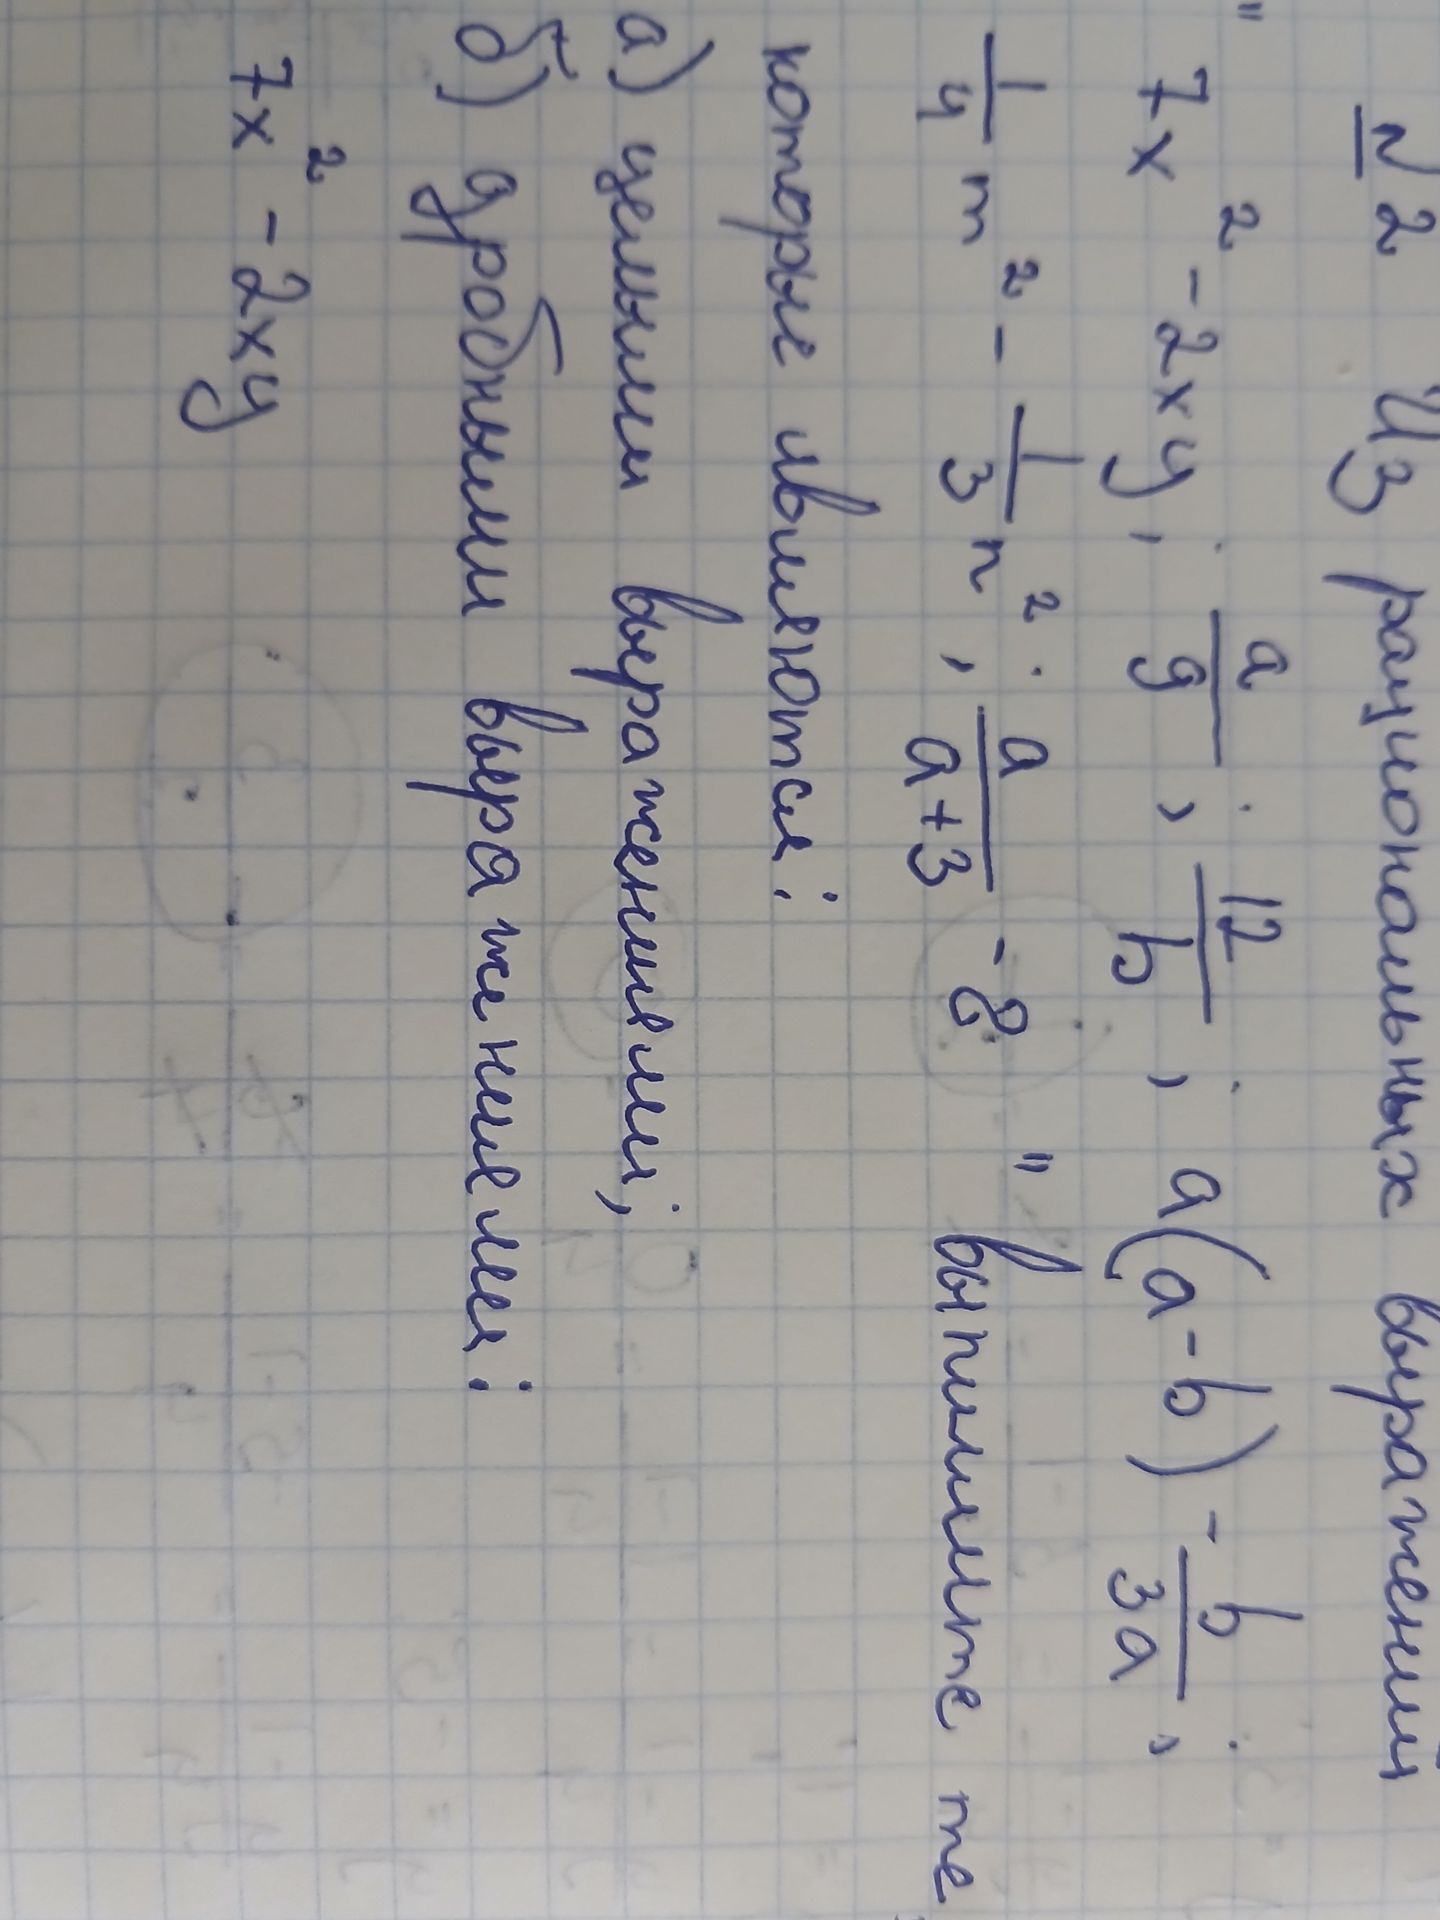 №2 Из рациональных выражений
" 7x² - 2xy; a/9; 12/b; a(a-b) - b/3a;
1/4 m² - 1/3 n²; a/(a+3) - 8 " выпишите те
которые являются:
а) целыми выражениями;
б) дробными выражениями:
7x² - 2xy